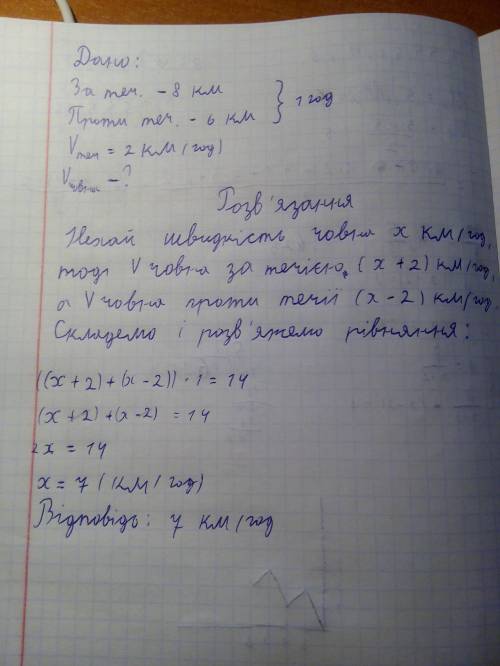 Дано:
За теч. - 8 км
Проти теч. - 6 км } 1 год
Vтеч = 2 км/год
Vчовна - ?
Розв'язання
Нехай швидкість човна x км/год,
тоді V човна за течією (x + 2) км/год,
а V човна проти течії (x - 2) км/год.
Складемо і розв'яжемо рівняння:
((x + 2) + (x - 2)) · 1 = 14
(x + 2) + (x - 2) = 14
2x = 14
x = 7 (км/год)
Відповідь: 7 км/год